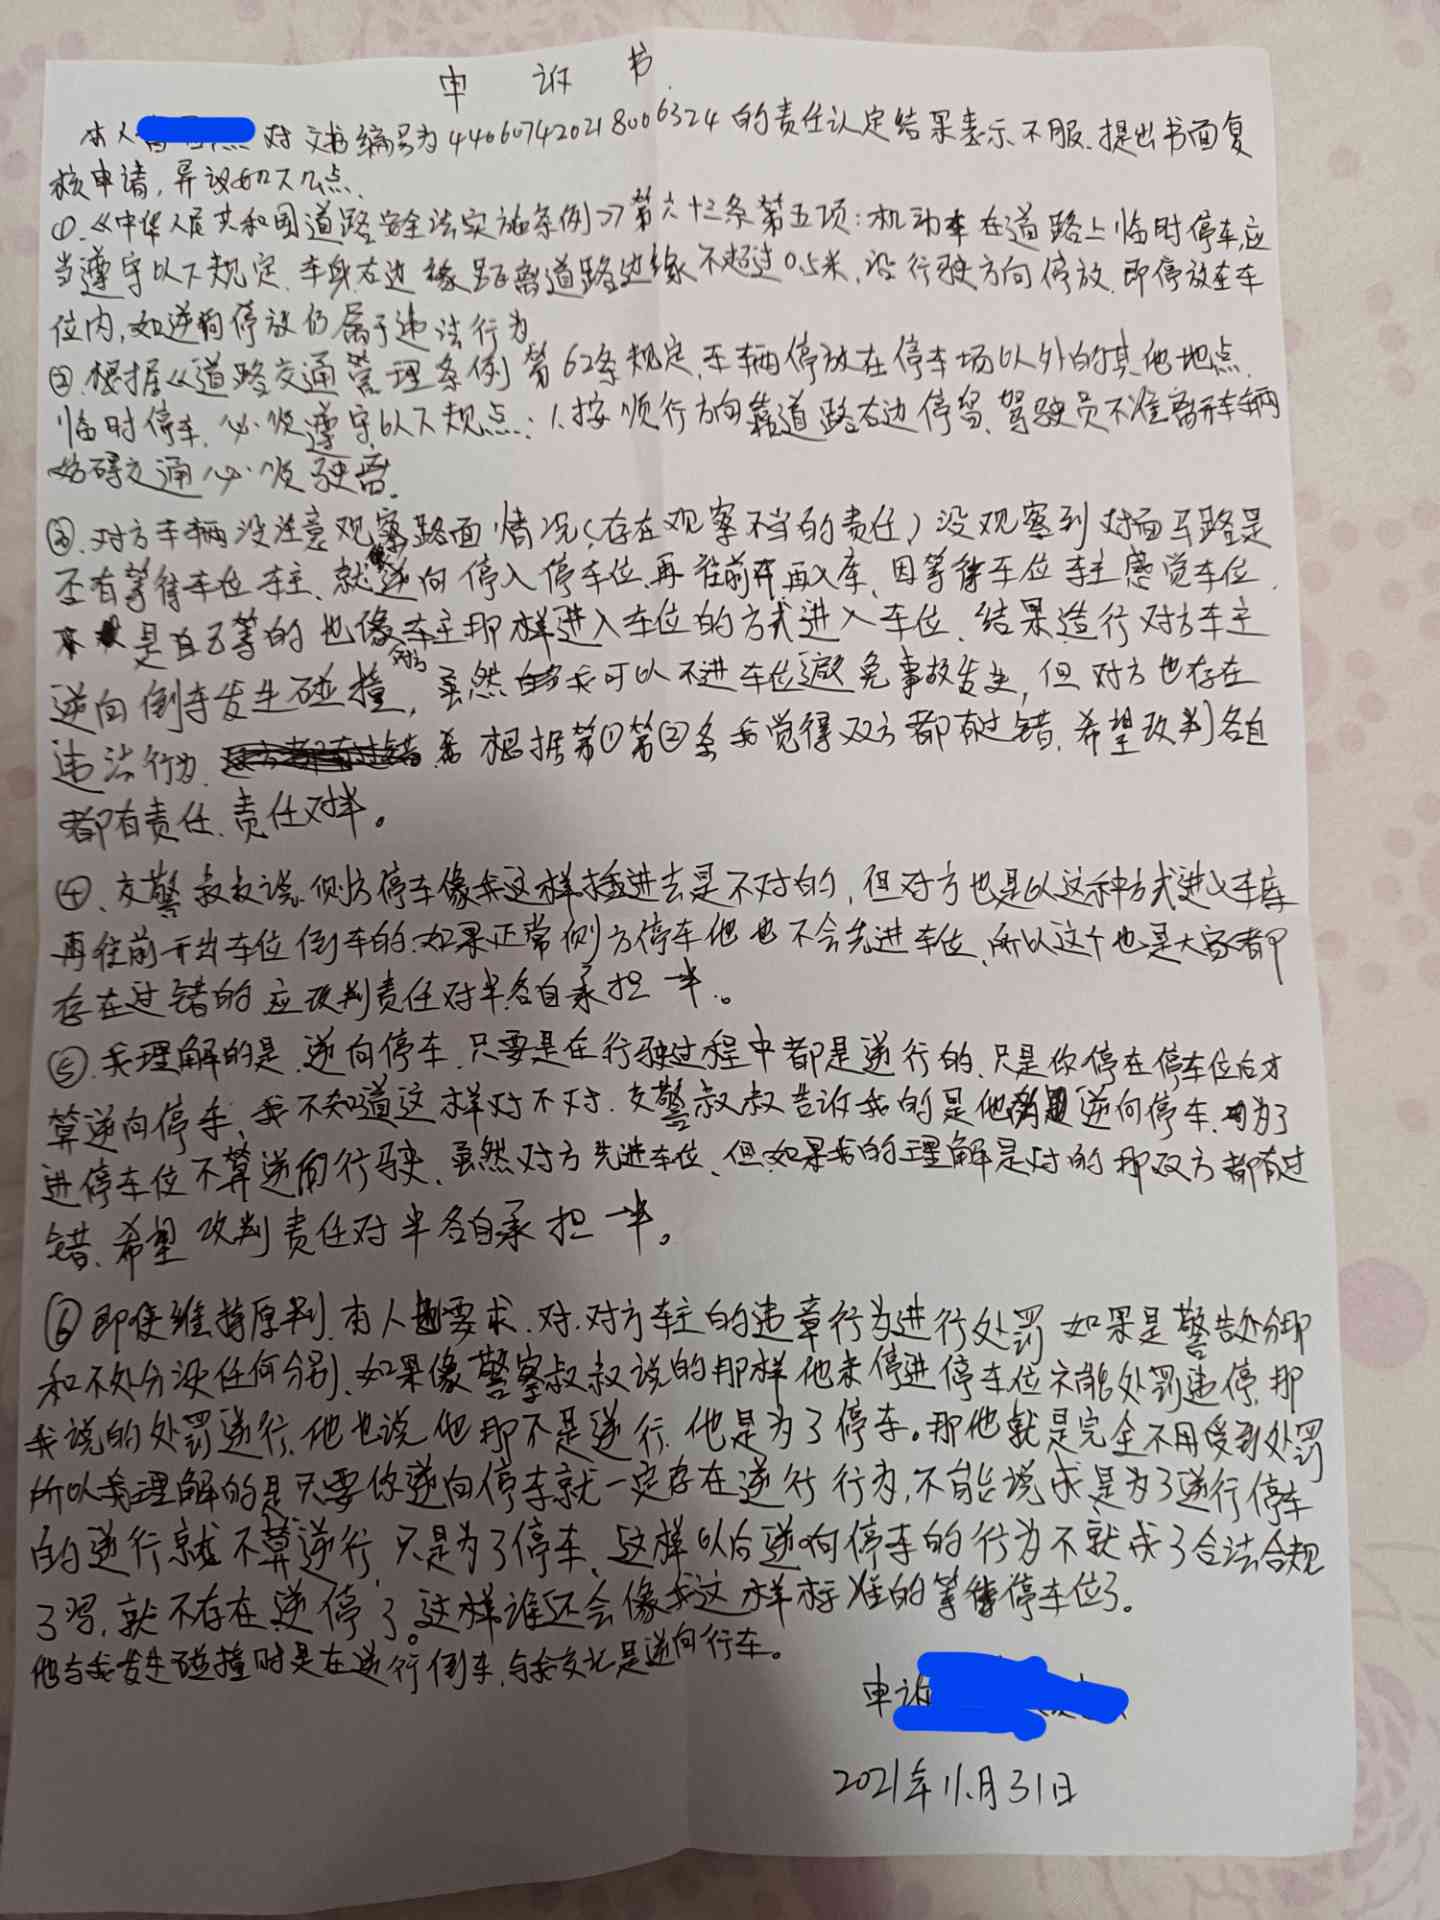 申 诉 书
本人 对文书编号为440607420218006324的责任认定结果表示不服.提出书面复
核申请,异议如下几点.
①.《中华人民共和国道路安全法实施条例》第六十三条第五项:机动车在道路上临时停车,应
当遵守以下规定.车身右边缘距离道路边缘不超过0.5米,沿行驶方向停放.即停放在车
位内,如逆向停放仍属于违法行为
②.根据《道路交通管理条例第62条规定,车辆停放在停车场以外的其他地点.
临时停车.必须遵守以下规点:1.按顺行方向靠道路右边停留.驾驶员不准离开车辆
妨碍交通必须驶离.
③.对方车辆没注意观察路面情况(存在观察不当的责任)没观察到对面马路是
否有等待车位车主、就逆向停入停车位.再往前开再入库.因等待车位车主感觉车位.
是自己等的也像车主那样进入车位的方式进入车位.结果造行对方车主
逆向倒车发生碰撞,虽然我可以不进车位避免事故发生,但对方也存在
违法行为. 根据第①第②条我觉得双方都有过错.希望改判各自
都有责任.责任对半。
④、交警叔叔说.侧方停车像我这样插进去是不对的,但对方也是以这种方式进入车库
再往前开出车位倒车的.如果正常侧方停车他也不会先进车位.所以这个也是大家都
存在过错的应改判责任对半.各自承担一半.。
⑤.我理解的是.逆向停车.只要是在行驶过程中都是逆行的.只是你停在停车位后才
算逆向停车,我不知道这样对不对.交警叔叔告诉我的是他 逆向停车.为了
进停车位不算逆向行驶.虽然对方先进车位.但如果我的理解是对的那双方都有过
错.希望 改判责任对半各自承担一半。
⑥即使维持原判.本人 要求.对.对方车主的违章行为进行处罚如果是警告处分即
和不处分没任何分别.如果像警察叔叔说的那样他未停进停车位不能处罚违停.那
我说的处罚逆行.他也说他那不是逆行.他是为了停车。那他就是完全不用受到处罚
所以我理解的是只要你逆向停车就一定存在逆行行为.不能说 是为了逆行停车
的逆行就不算逆行.只是为了停车.这样以后逆向停车的行为不就成了合法合规
了 .就不存在逆停了。这样谁还会像我这样标准的等待停车位了。
他与我发生碰撞时是在逆行倒车.与我交汇是逆向行车。
申诉
2021年11月31日